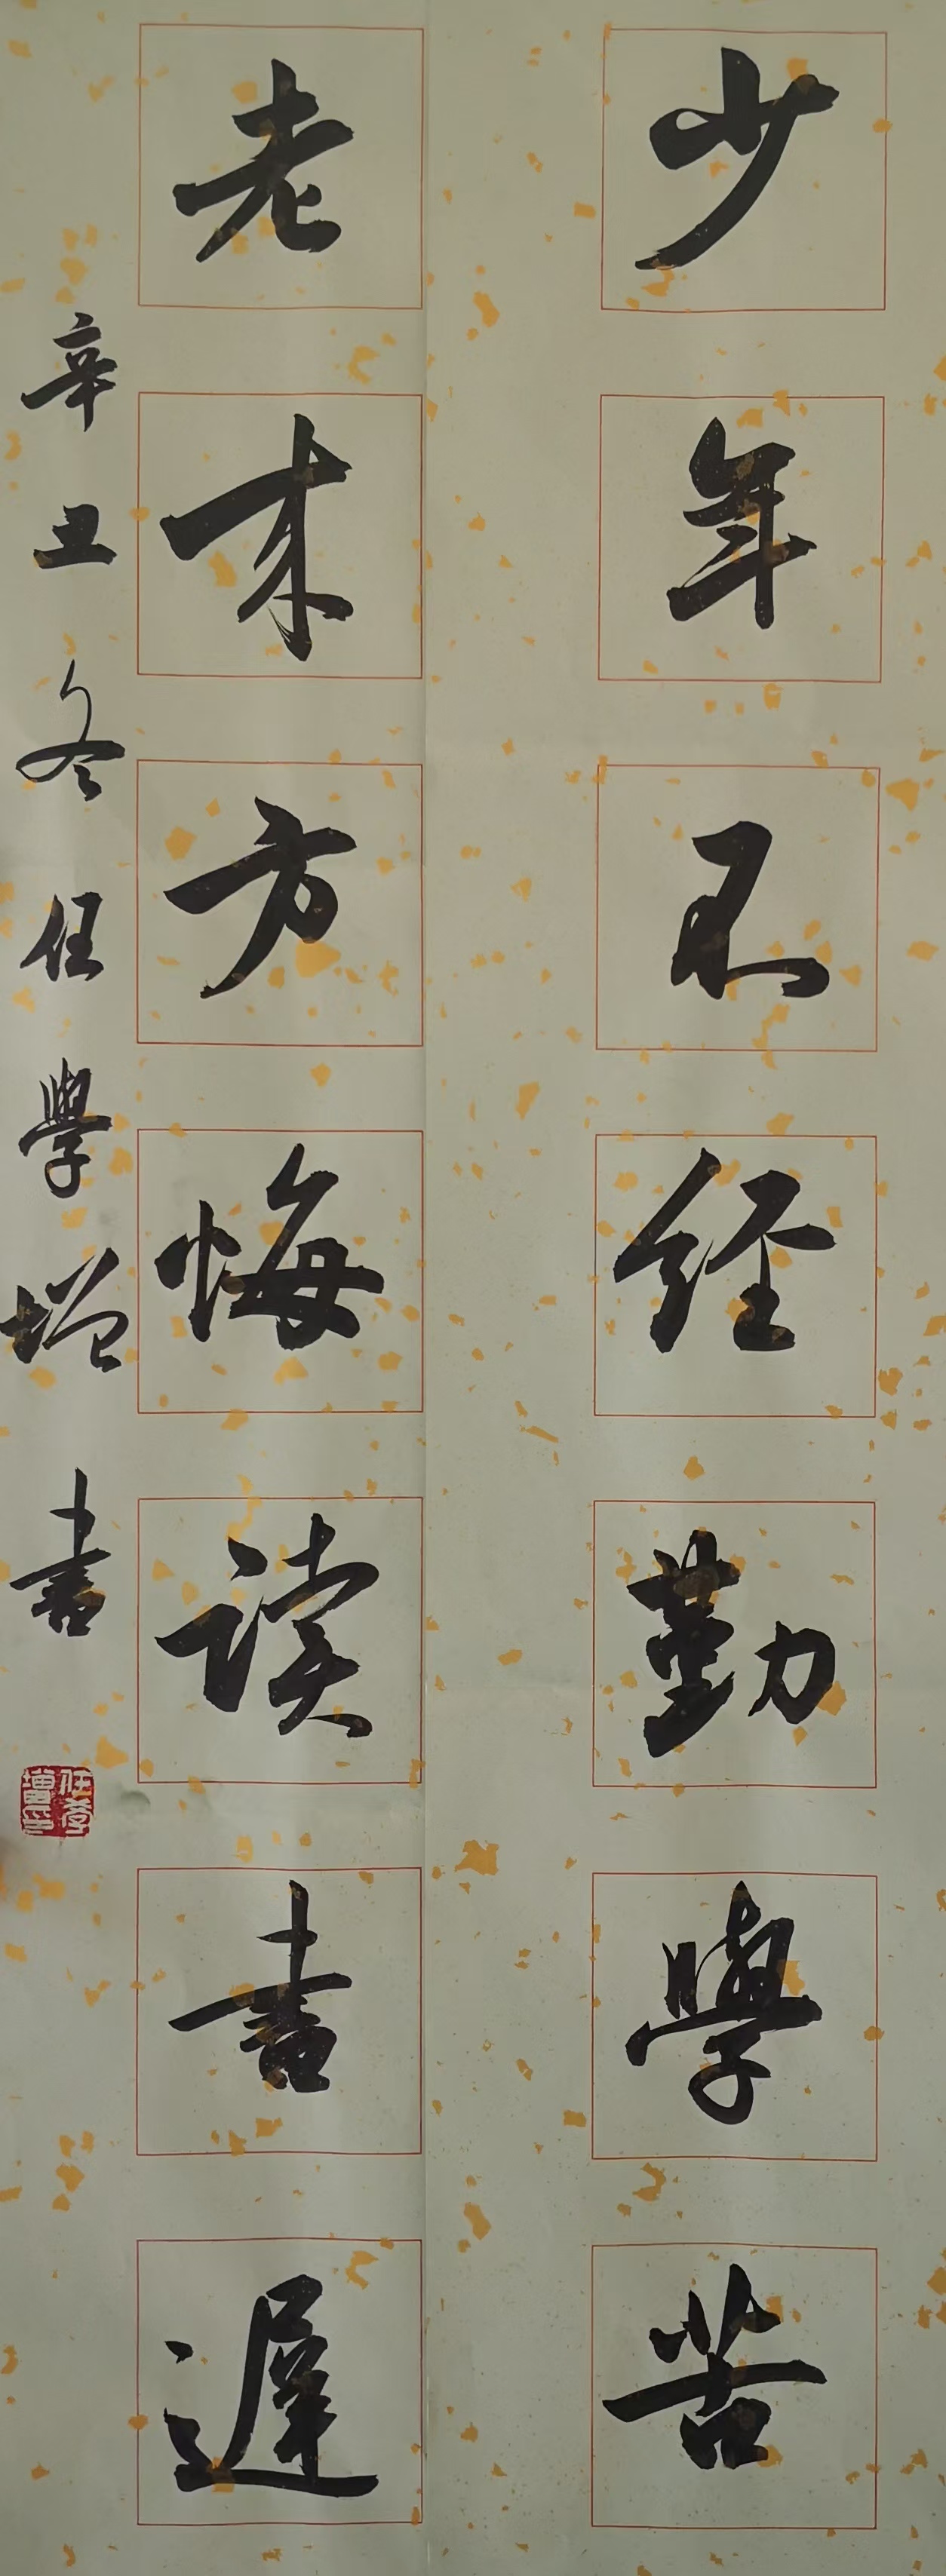 少年不经勤學苦
老来方悔读書遲
辛丑冬任學増書
任學增印